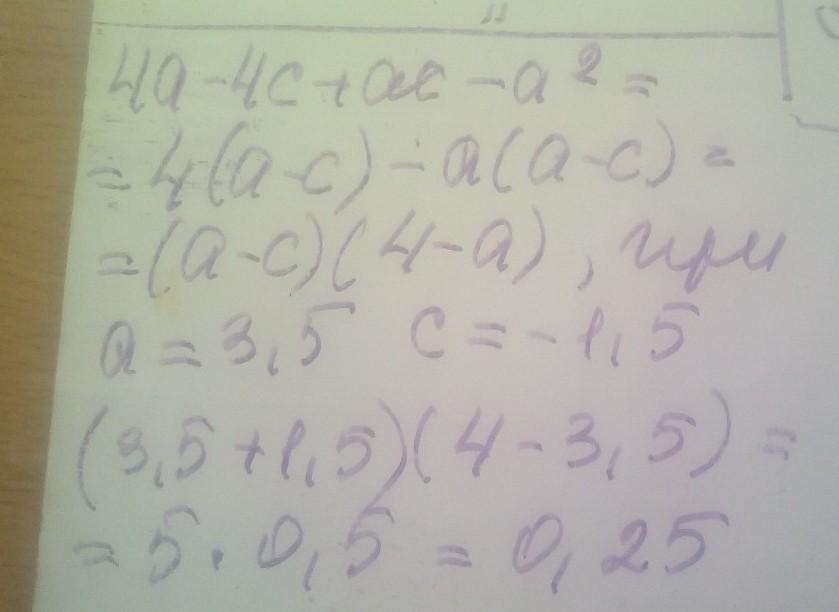 4a-4c+ac-a²=
=4(a-c)-a(a-c)=
=(a-c)(4-a), при
a=3,5 c=-1,5
(3,5+1,5)(4-3,5)=
=5·0,5=0,25